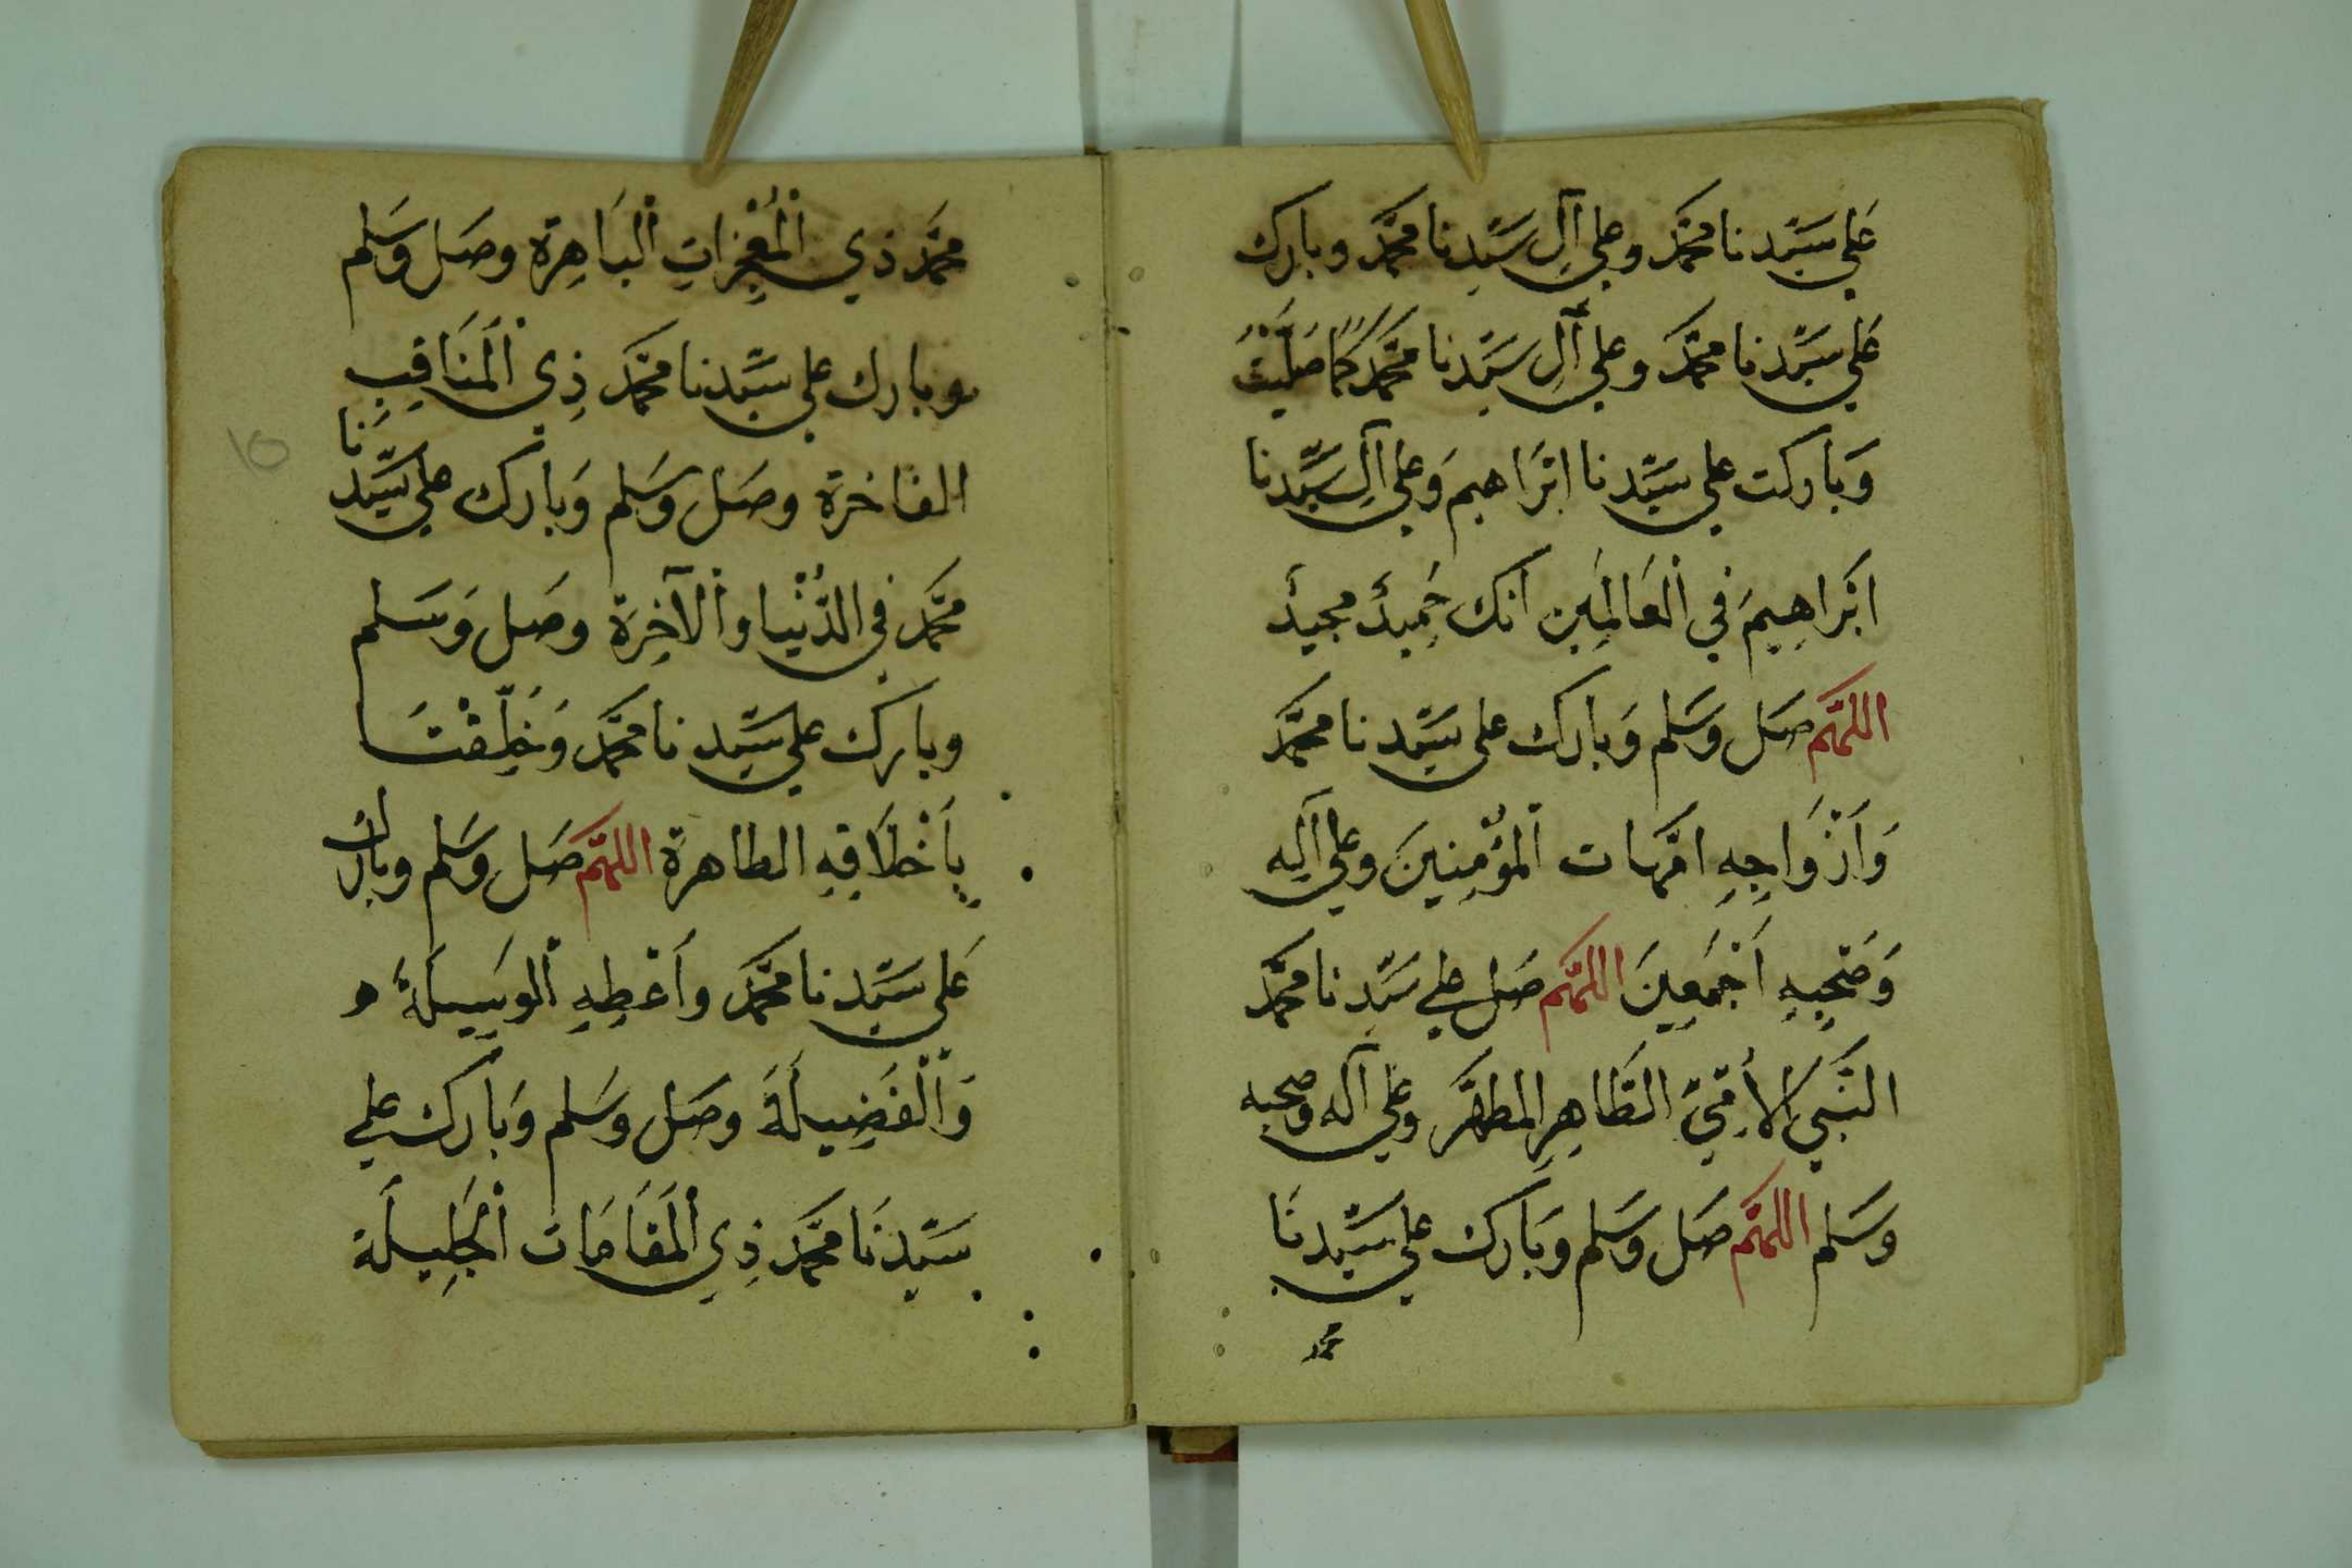 عَلي سَيّدنا محمَّد وعلي آلِ سَيّدِنا محمَّد وبارك
عَلي سَيّدِنا محمَّد وعلي آلِ سَيّدنا محمَّد كَمَا صَلَّيْتَ
وَباركت علي سَيّدنا ابْرَاهيم وَعلي آلِ سَيِّدنا
ابْرَاهِيمَ في الْعَالَمِين انك حَمِيدٌ مجيدٌ
اللهمَّ صَل وَسَلم وَبارك علي سَيّدنا محمَّد
وَأَزْوَاجِهِ امَّهات الْمُؤْمِنِينَ وعلي آلِه
وَصَحْبِهِ أَجْمَعِينَ اللهمَّ صَل علي سَيّدنا محمَّد
النَّبي الأُمِّيّ الطَّاهِرِ المطهَّر وعَلي آله وصحبه
وسَلم اللهمَّ صَل وَسَلم وَبَارك علي سَيّدنَا
محمد
محمَّد ذي الْمُعْجِزاتِ الْبَاهِرة وصَل وَسَلم
وبارك علي سَيّدنا محمَّد ذِي الْمَنَاقِبِ
الفاخرة وصَل وَسَلم وَبارك علي سَيّدنَا
محمَّد في الدُّنْيا والْآخِرَة وصَل وَسَلم
وبارك علي سَيّدنا محمَّد وَخَلِّقْنَا
بِأَخْلَاقِهِ الطاهرة اللهمَّ صَل وَسَلم وبارك
عَلي سَيّدنا محمَّد وأَعْطِهِ الْوَسِيلَةَ
وَالْفَضِيلَةَ وصَل وسَلم وَبَارك علي
سَيّدِنَا محمَّد ذِي الْمَقَامَات الْجَلِيلَة
١٥